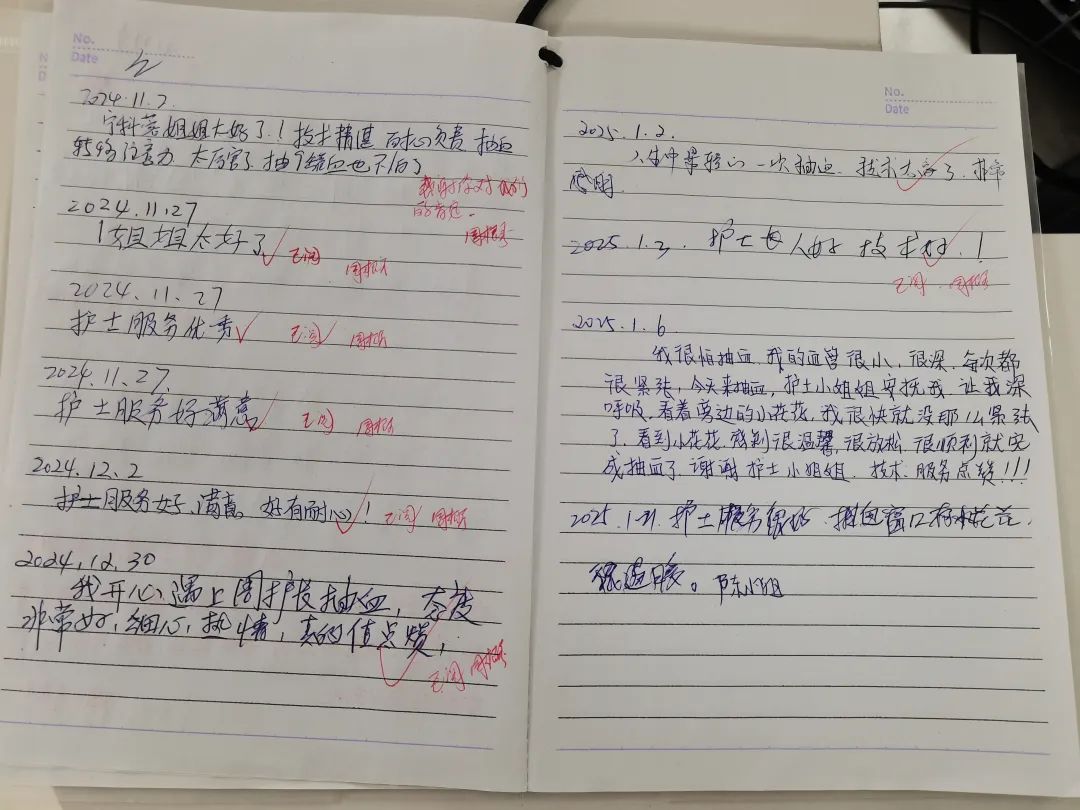 No.
Date
2024.11.2.
姐姐太好了！技术精湛 耐心负责 抽血
转移注意力 太厉害了 抽个血也不怕了
2024.11.27
姐姐太好了
已阅
2024.11.27
护士服务优秀
已阅
2024.11.27.
护士服务好满意
已阅
2024.12.2
护士服务好、满意 好有耐心！
已阅
2024.12.30
我开心遇上周护长抽血，态度
非常好，细心，热情，真的值点赞，
已阅
No.
Date
2025.1.2.
人生中最轻的一次抽血，技术太高了，非常
2025.1.3. 护士长人好 技术好！
已阅
2025.1.6.
我很怕抽血，我的血管很小，很深，每次都
很紧张，今天来抽血，护士小姐姐安抚我，让我深
呼吸，看着旁边的小花花，我很快就没那么紧张
了，看到小花花，感到很温馨，很放松，很顺利就完
成抽血了，谢谢护士小姐姐，技术、服务点赞！！！
2025.1.31. 护士服务很好，窗口
陈小姐